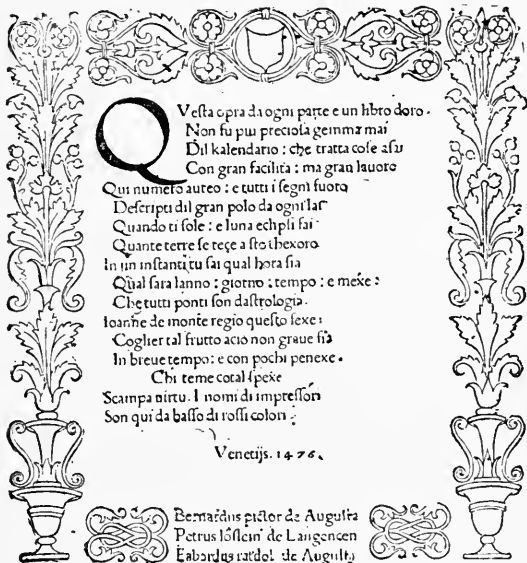 Questa opra da ogni parte e un libro doro.
Non fu piu preciosa gemma mai
Dil kalendario: che tratta cose asai
Con gran facilita: ma gran lauoro
Qui numero aureo: e tutti i segni fuoro
Descripti dil gran polo da ogni lai
Quando ti sole: e luna eclipsi fai
Quante terre se reçe a sto thexoro
In un instanti tu sai qual hora sia
Qual sara lanno: giorno: tempo: e mexe:
Che tutti ponti son dastrologia.
Ioanne de monte regio questo fexe:
Coglier tal frutto acio non graue sia
In breue tempo: e con pochi penexe.
Chi teme cotal spexe
Scampa uirtu. I nomi di impressori
Son qui da basso di rossi colori.
Venetijs. 1476.
Bernardus pictor de Augusta
Petrus löslein de Langencen
Erhardus ratdolt de Augusta